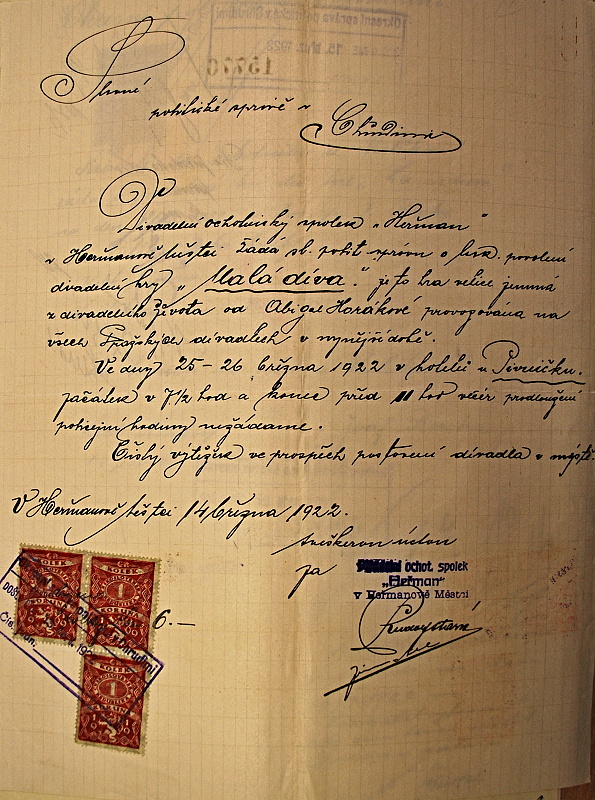 Slavné
politické správě v
Chrudimi
Divadelní ochotnický spolek „Heřman"
v Heřmanově Městci žádá sl. polit. správu o lask. povolení
divadelní hry „Malá díva". je to hra velice jemná
z divadelního života od Abigail Horákové provozována na
všech Pražských divadlech v nynější době.
Ve dny 25-26 března 1922 v hotelu u Pivničků.
začátek v 7½ hod a konec před 11 hod večer prodloužení
policejní hodiny nežádáme.
Čistý výtěžek ve prospěch postavení divadla v městě.
V Heřmanově Městci 14 března 1922.
v veškeré úctě
za
ochot. spolek
„Heřman"
v Heřmanově Městci
6.—
KOLEK
1
KORUNA
KOLEK
1
KORUNA
KOLEK
1
KORUNA
15776